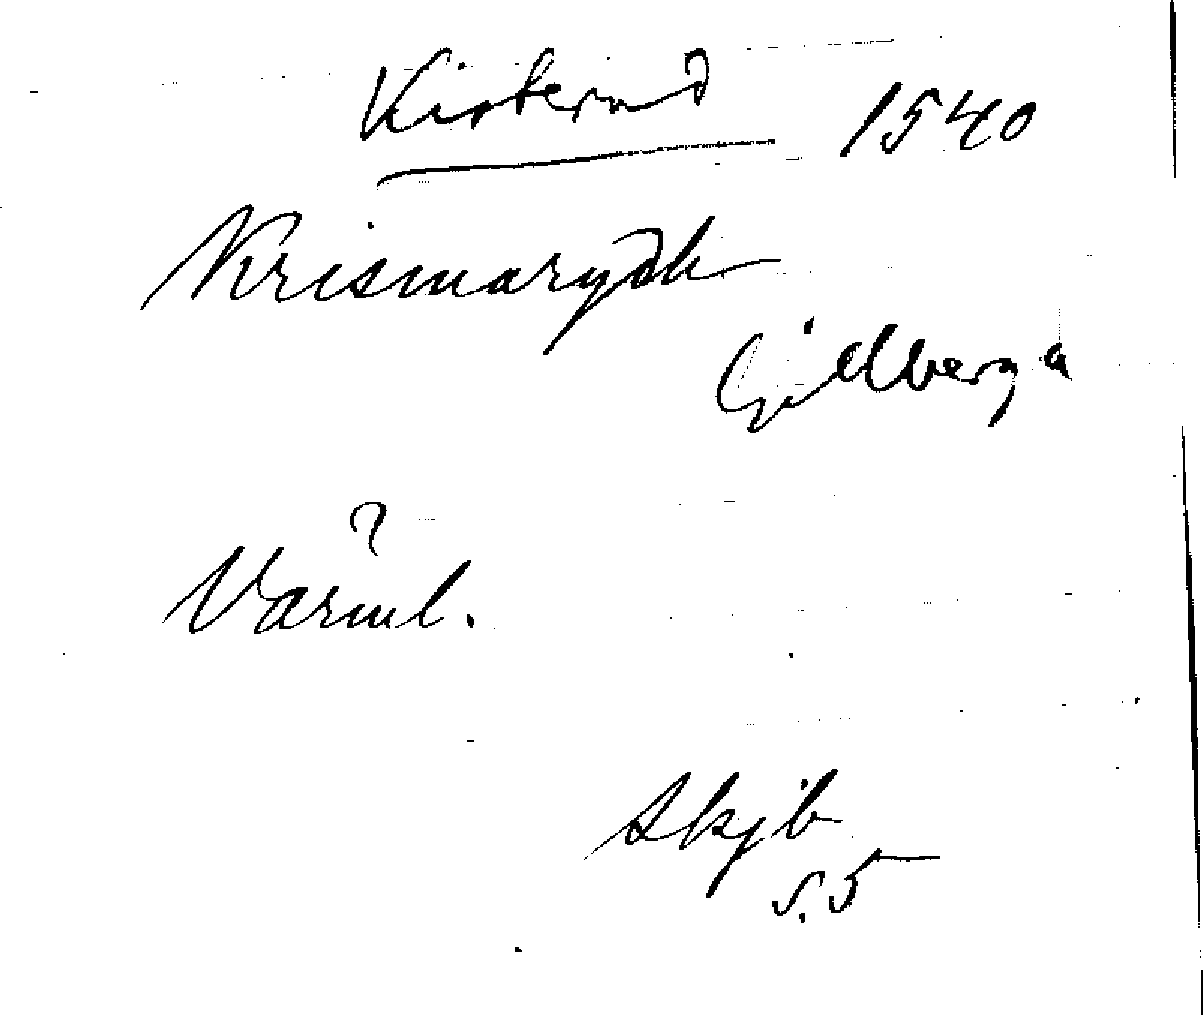 Kisterud 1540
Krismarydh
Gillberga
?
Värml.
Skjb
s. 5